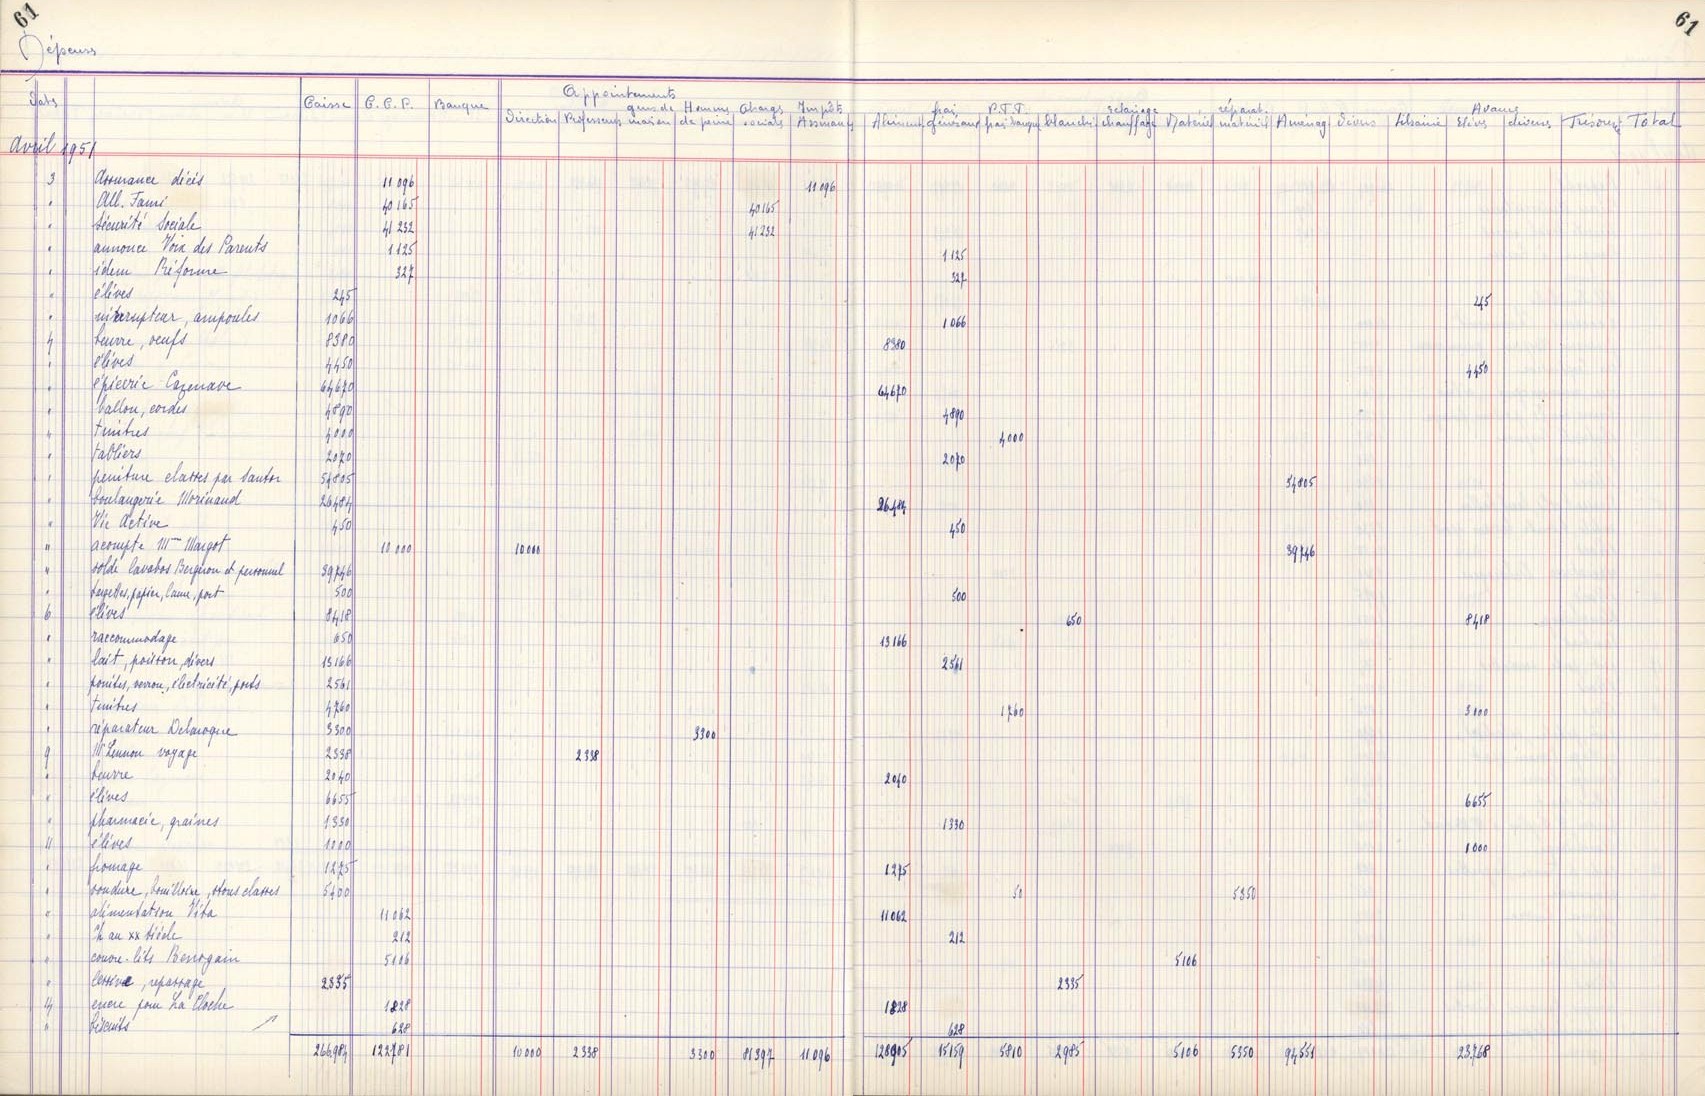 61
61
Dépenses
Date Caisse C.C.P. Banque Appointements Direction Professeurs gens de maison Homme de peine Charges sociales Impôts Assurances Aliment. frai généraux P.T.T. frais banque blanchis. eclairage chauffage Matériel réparat. matériel Aménag Divers Librairie Avances élèves divers Trésorerie Total
Avril 1951
3 Assurance décès 11 096 11 096
" All. Fami 40 165 40165
" Sécurité Sociale 41 232 41 232
" annonce Voix des Parents 1 125 1 125
" idem Réforme 327 327
" élèves 245 245
" interrupteur, ampoules 1066 1 066
4 beurre, oeufs 8380 8380
" élèves 4450 4450
" épicerie Cazenave 64670 64670
" ballon, cordes 4890 4890
" timbres 4000 4 000
" tabliers 2070 2070
" peinture classes par Santor 54805 54805
" boulangerie Morinaud 26484 26484
" Vie Active 450 450
" acompte Mme Margot 10 000 10 000
" solde lavabos Bergeron et personnel 39746 39746
" targettes, papier, lame, port 500 500
6 élèves 8418 8418
" raccommodage 650 650
" lait, poisson, divers 13166 13166
" pointes, verrou, électricité, ports 2561 2561
" timbres 4760 1760 3000
" réparateur Delarogue 3300 3300
9 Mr Lennon voyage 2338 2 338
" beurre 2040 2040
" élèves 6655 6655
" pharmacie, graines 1330 1330
11 élèves 1000 1 000
" fromage 1275 1275
" soudure, bouilloire, stous classes 5400 50 5350
" alimentation Vita 11 062 11 062
" Ch au xx siècle 212 212
" couvre-lits Benogain 5106 5106
" lessive, repassage 2335 2335
14 encre pour La Cloche 1828 1828
" biscuits 628 628
266,984 122781 10 000 2 338 3 300 81 397 11 096 128905 15159 5810 2985 5106 5350 94551 23,768